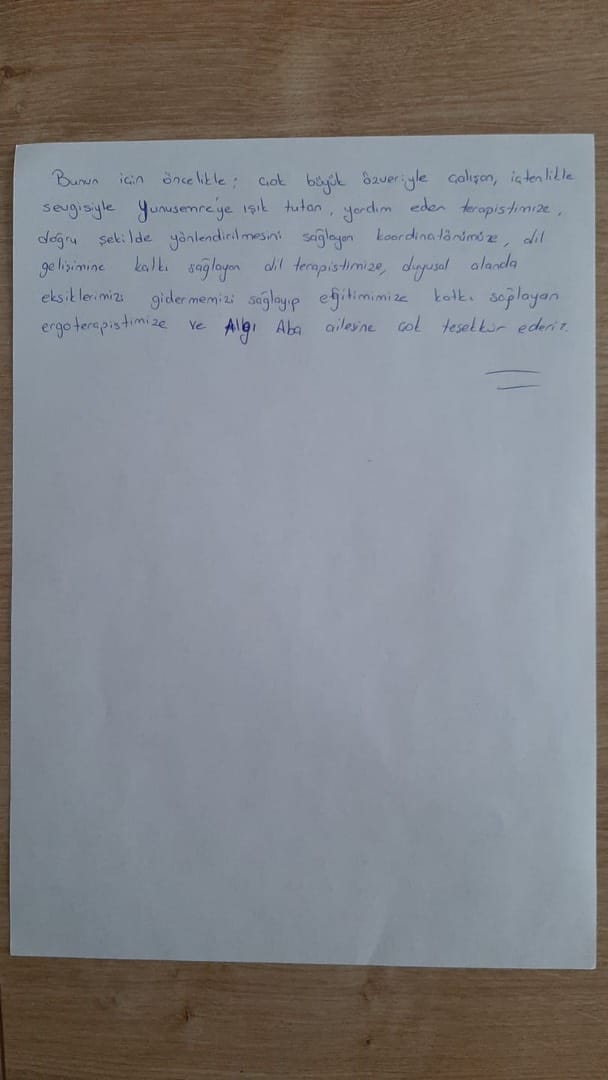 Bunun için öncelikle; çok büyük özveriyle çalışan, içtenlikle
sevgisiyle Yunusemre'ye ışık tutan, yardım eden terapistimize,
doğru şekilde yönlendirilmesini sağlayan koordinatörümüze, dil
gelişimine katkı sağlayan dil terapistimize, duyusal alanda
eksiklerimizi gidermemizi sağlayıp eğitimimize katkı sağlayan
ergoterapistimize ve Algı Aba ailesine çok teşekkür ederiz.